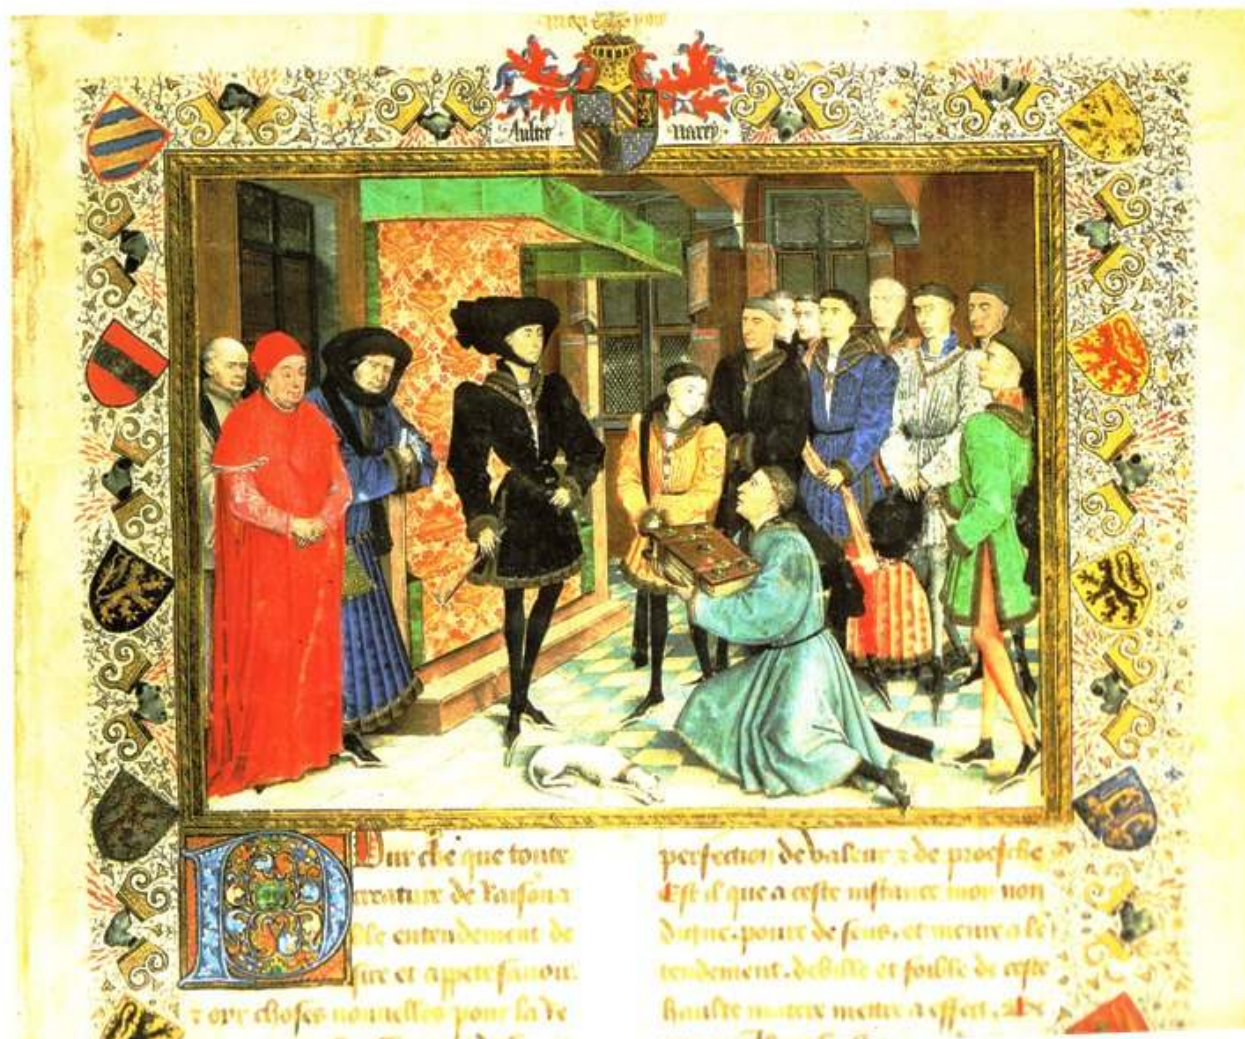 Aultre narey
POur che que toute
creature de raisona
ble entendement de
sire et appete sauoir
oyr choses nouuelles pour la re
perfection de valeur z de proesche
Est il que a ceste instance moy non
digne, poure de sens, et menre
tendement, debille et foible de ceste
haulte matere mettre a effect,